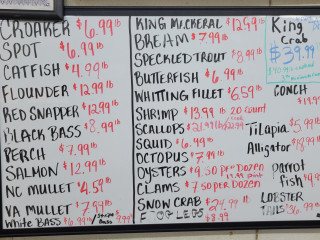 CROAKER $6.99 lb
SPOT $6.99 lb
CATFISH $4.99 lb
FLOUNDER $12.99 lb
RED SNAPPER $12.99 lb
BLACK BASS $8.99 lb
PERCH $7.99 lb
SALMON $12.99 lb
NC MULLET $4.59 lb
VA MULLET $7.99 lb
WHITE BASS $6.99 lb
KING MACKERAL $12.99 lb
BREAM $7.99 lb
SPECKLED TROUT $8.99 lb
BUTTERFISH $6.99 lb
WHITTING FILLET $6.59 lb
SHRIMP $13.99 lb 20 count
SCALLOPS $21.99 lb
SQUID $6.99 lb
OCTOPUS $7.99 lb
OYSTERS $9.50 per Dozen
CLAMS $7.50 per DOZEN
SNOW CRAB $24.99 lb
LEGS $8.99
King Crab
$39.99
CONCH
Tilapia $5.99 lb
Alligator
parrot fish
LOBSTER TAILS